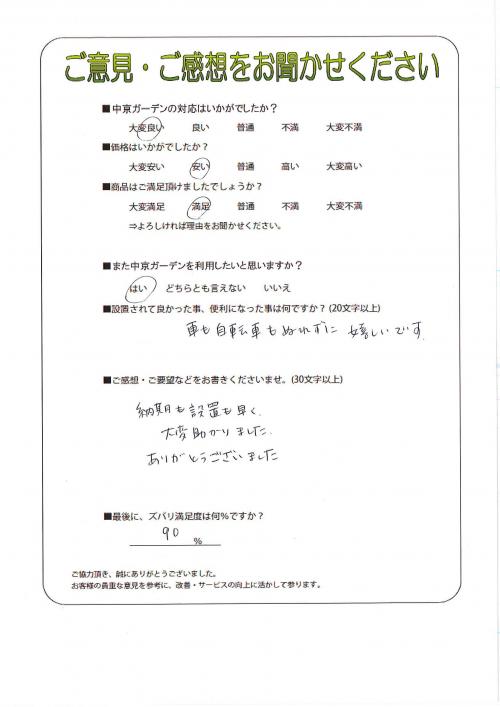 ご意見・ご感想をお聞かせください
■中京ガーデンの対応はいかがでしたか？
大変良い 良い 普通 不満 大変不満
■価格はいかがでしたか？
大変安い 安い 普通 高い 大変高い
■商品はご満足頂けましたでしょうか？
大変満足 満足 普通 不満 大変不満
⇒よろしければ理由をお聞かせください。
■また中京ガーデンを利用したいと思いますか？
はい どちらとも言えない いいえ
■設置されて良かった事、便利になった事は何ですか？(20文字以上)
車も自転車もぬれずに 嬉しいです
■ご感想・ご要望などをお書きくださいませ。(30文字以上)
納期も設置も早く、
大変助かりました。
ありがとうございました
■最後に、ズバリ満足度は何%ですか？
90 %
ご協力頂き、誠にありがとうございました。
お客様の貴重な意見を参考に、改善・サービスの向上に活かして参ります。